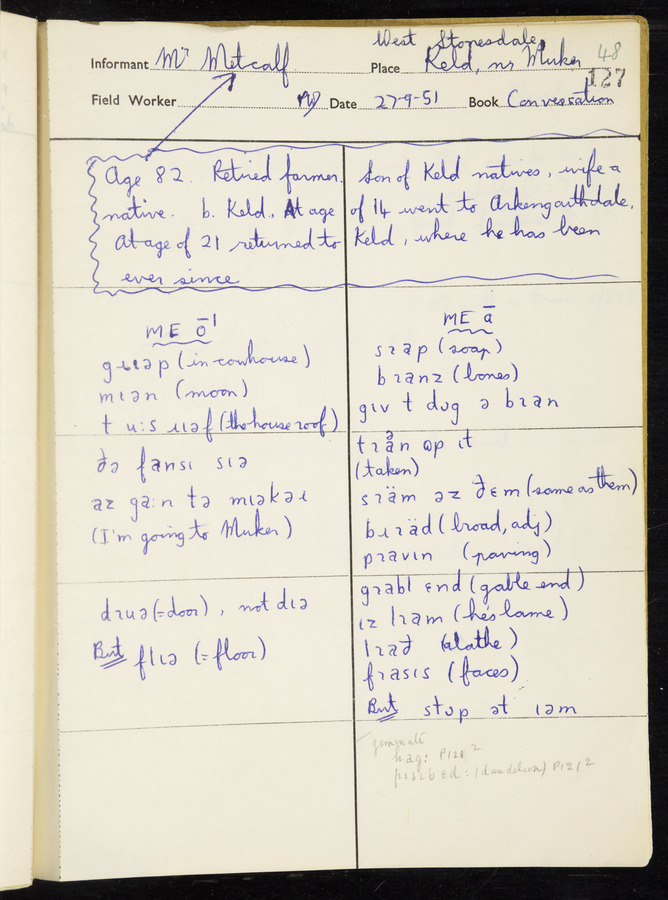 West Stonesdale,
Informant Mr Metcalf Place Keld, nr Muker 48
127
Field Worker Date 27-9-51 Book Conversation
Age 82. Retired farmer. Son of Keld natives, wife a
native. b. Keld. At age of 14 went to Arkengarthdale.
At age of 21 returned to Keld, where he has been
ever since
ME ō¹
(in cowhouse)
mɪən (moon)
(the house roof)
ðə fansɪ sɪə
az ga:n tə mɪəkəɹ
(I'm going to Muker)
(=door), not dɪə
But flɪə (=floor)
ME ā
(soap)
(bones)
gɪv t dʊg ə
(taken)
əz ðɛm (same as them)
(broad, adj)
(paving)
ɛnd (gable end)
ɪz (he's lame)
(a lathe)
(faces)
But stɒp ət ɪəm
geminate
hag: P121 2
(dandelion) P121 2